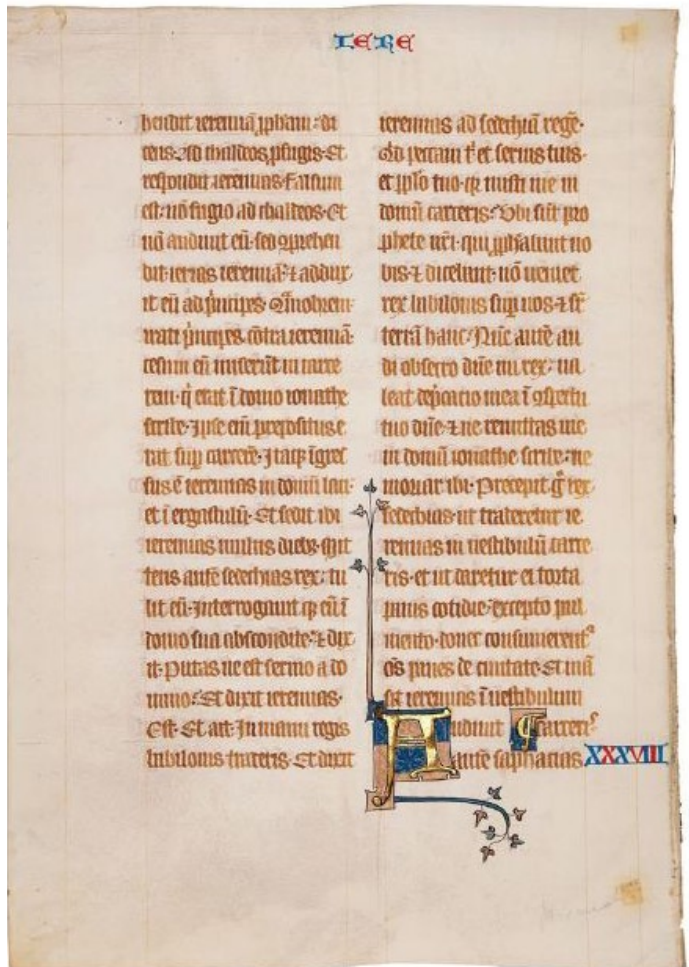 IERE
hendit ieremiā ꝓphām: di
cens· Ad chaldeos ꝓfugis· Et
respondit ieremias· Falsum
est· nō fugio ad chaldeos· Et
nō audiuit eū· sed ꝯprehen
dit ierias ieremiā· ⁊ addux
it eū ad p̄ncipes· Quāobrem
irati p̄ncipes cōtra ieremiā·
cesum eū miserūt in carce
rem· q̄ erat ī domo ionathe
scribe· Ipse eiū prepositus e
rat suꝑ carcerē· Itaqꝫ īgres
sus ē ieremias in domū laci·
et ī ergastulū· Et sedit ibi
ieremias multis diebꝫ· Mit
tens autē sedechias rex: tu
lit eū· Interrogauit qꝫ eū ī
domo sua abscondite· ⁊ dix
it· Putas ne est sermo a do
mino· Et dixit ieremias·
Est· Et ait· In manu regis
babilonis traderis· Et dixit
ieremias ad sedechiā regē·
Qd̄ peccaui t̄ et seruis tuis·
et pplo tuo· qꝫ misisti me in
domū carceris· Vbi sūt pro
phete ur̄i· qui ꝓphabant uo
bis· ⁊ dicebant· nō ueniet
rex babilonis suꝑ uos· ⁊ sr̄
terrā hanc· Nūc autē au
di obsecro dūe mi rex· ua
leat dep̄catio mea ī ꝯspectu
tuo dūe· ⁊ ne remittas me
in domū ionathe scribe· ne
moriar ibi· Precepit ḡ rex
sedechias· ut traderetur ie
remias in uestibulū carce
ris· et ut daretur ei torta
panis cotidie· excepto pul
mento· donec consumerent᷑
oēs panes de ciuitate· Et mā
sit ieremias ī uestibulum
Audiuit ¶ carceri᷑
autē saphatias XXXVIII